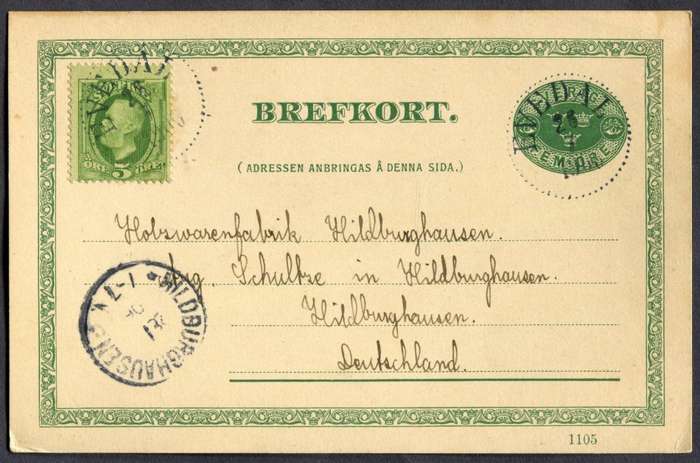 BREFKORT.
(ADRESSEN ANBRINGAS Å DENNA SIDA.)
5
FEM ÖRE
26
Holzwarenfabrik Hildburghausen.
Schultze in Hildburghausen.
Hildburghausen.
Deutschland.
HILDBURGHAUSEN
1105